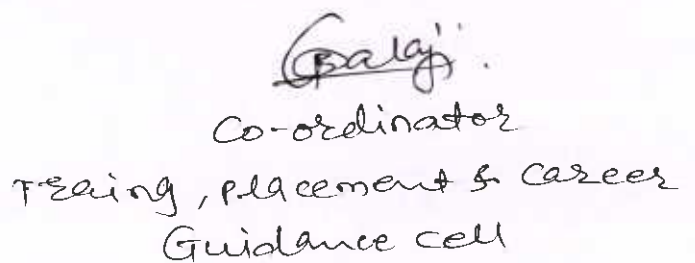 GBalaji.
Co-ordinator
Traing, placement & career
Guidance cell